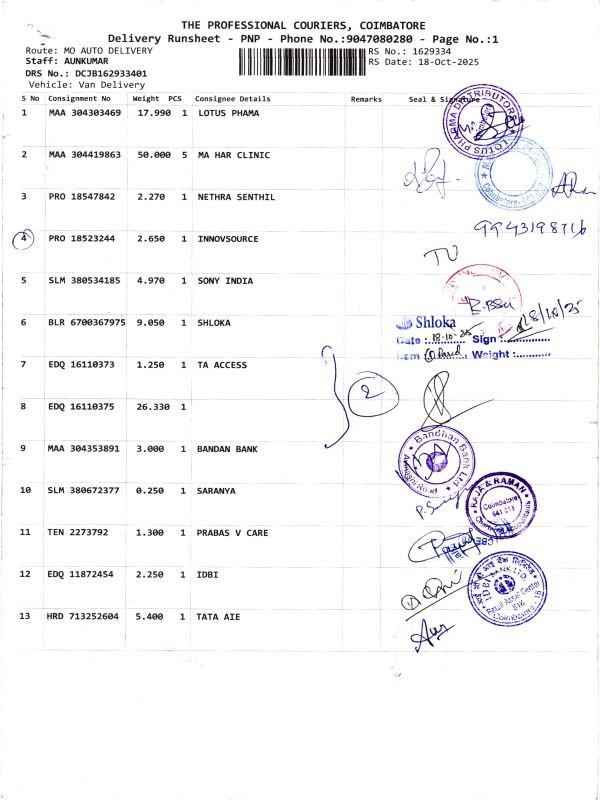 THE PROFESSIONAL COURIERS, COIMBATORE
Delivery Runsheet - PNP - Phone No.:9047080280 - Page No.:1
Route: MO AUTO DELIVERY RS No.: 1629334
Staff: AUNKUMAR RS Date: 18-Oct-2025
DRS No.: DCJB162933401
Vehicle: Van Delivery
S No Consignment No Weight PCS Consignee Details Remarks Seal & Signature
1 MAA 304303469 17.990 1 LOTUS PHAMA
LOTUS PHARMA DISTRIBUTORS
2 MAA 304419863 50.000 5 MA HAR CLINIC
Coimbatore
3 PRO 18547842 2.270 1 NETHRA SENTHIL
9943198716
4 PRO 18523244 2.650 1 INNOVSOURCE
5 SLM 380534185 4.970 1 SONY INDIA
18/10/25
6 BLR 6700367975 9.050 1 SHLOKA
Shloka
Date :18-10-25 Sign :
Weight :
7 EDQ 16110373 1.250 1 TA ACCESS
2
8 EDQ 16110375 26.330 1
9 MAA 304353891 3.000 1 BANDAN BANK
Bandhan Bank Ltd
10 SLM 380672377 0.250 1 SARANYA
RAJA & RAMAN
Coimbatore
641 018
Chartered Accountants
11 TEN 2273792 1.300 1 PRABAS V CARE
12 EDQ 11872454 2.250 1 IDBI
IDBI BANK LTD.
Retail Asset Center
816
Coimbatore - 18
13 HRD 713252604 5.400 1 TATA AIE